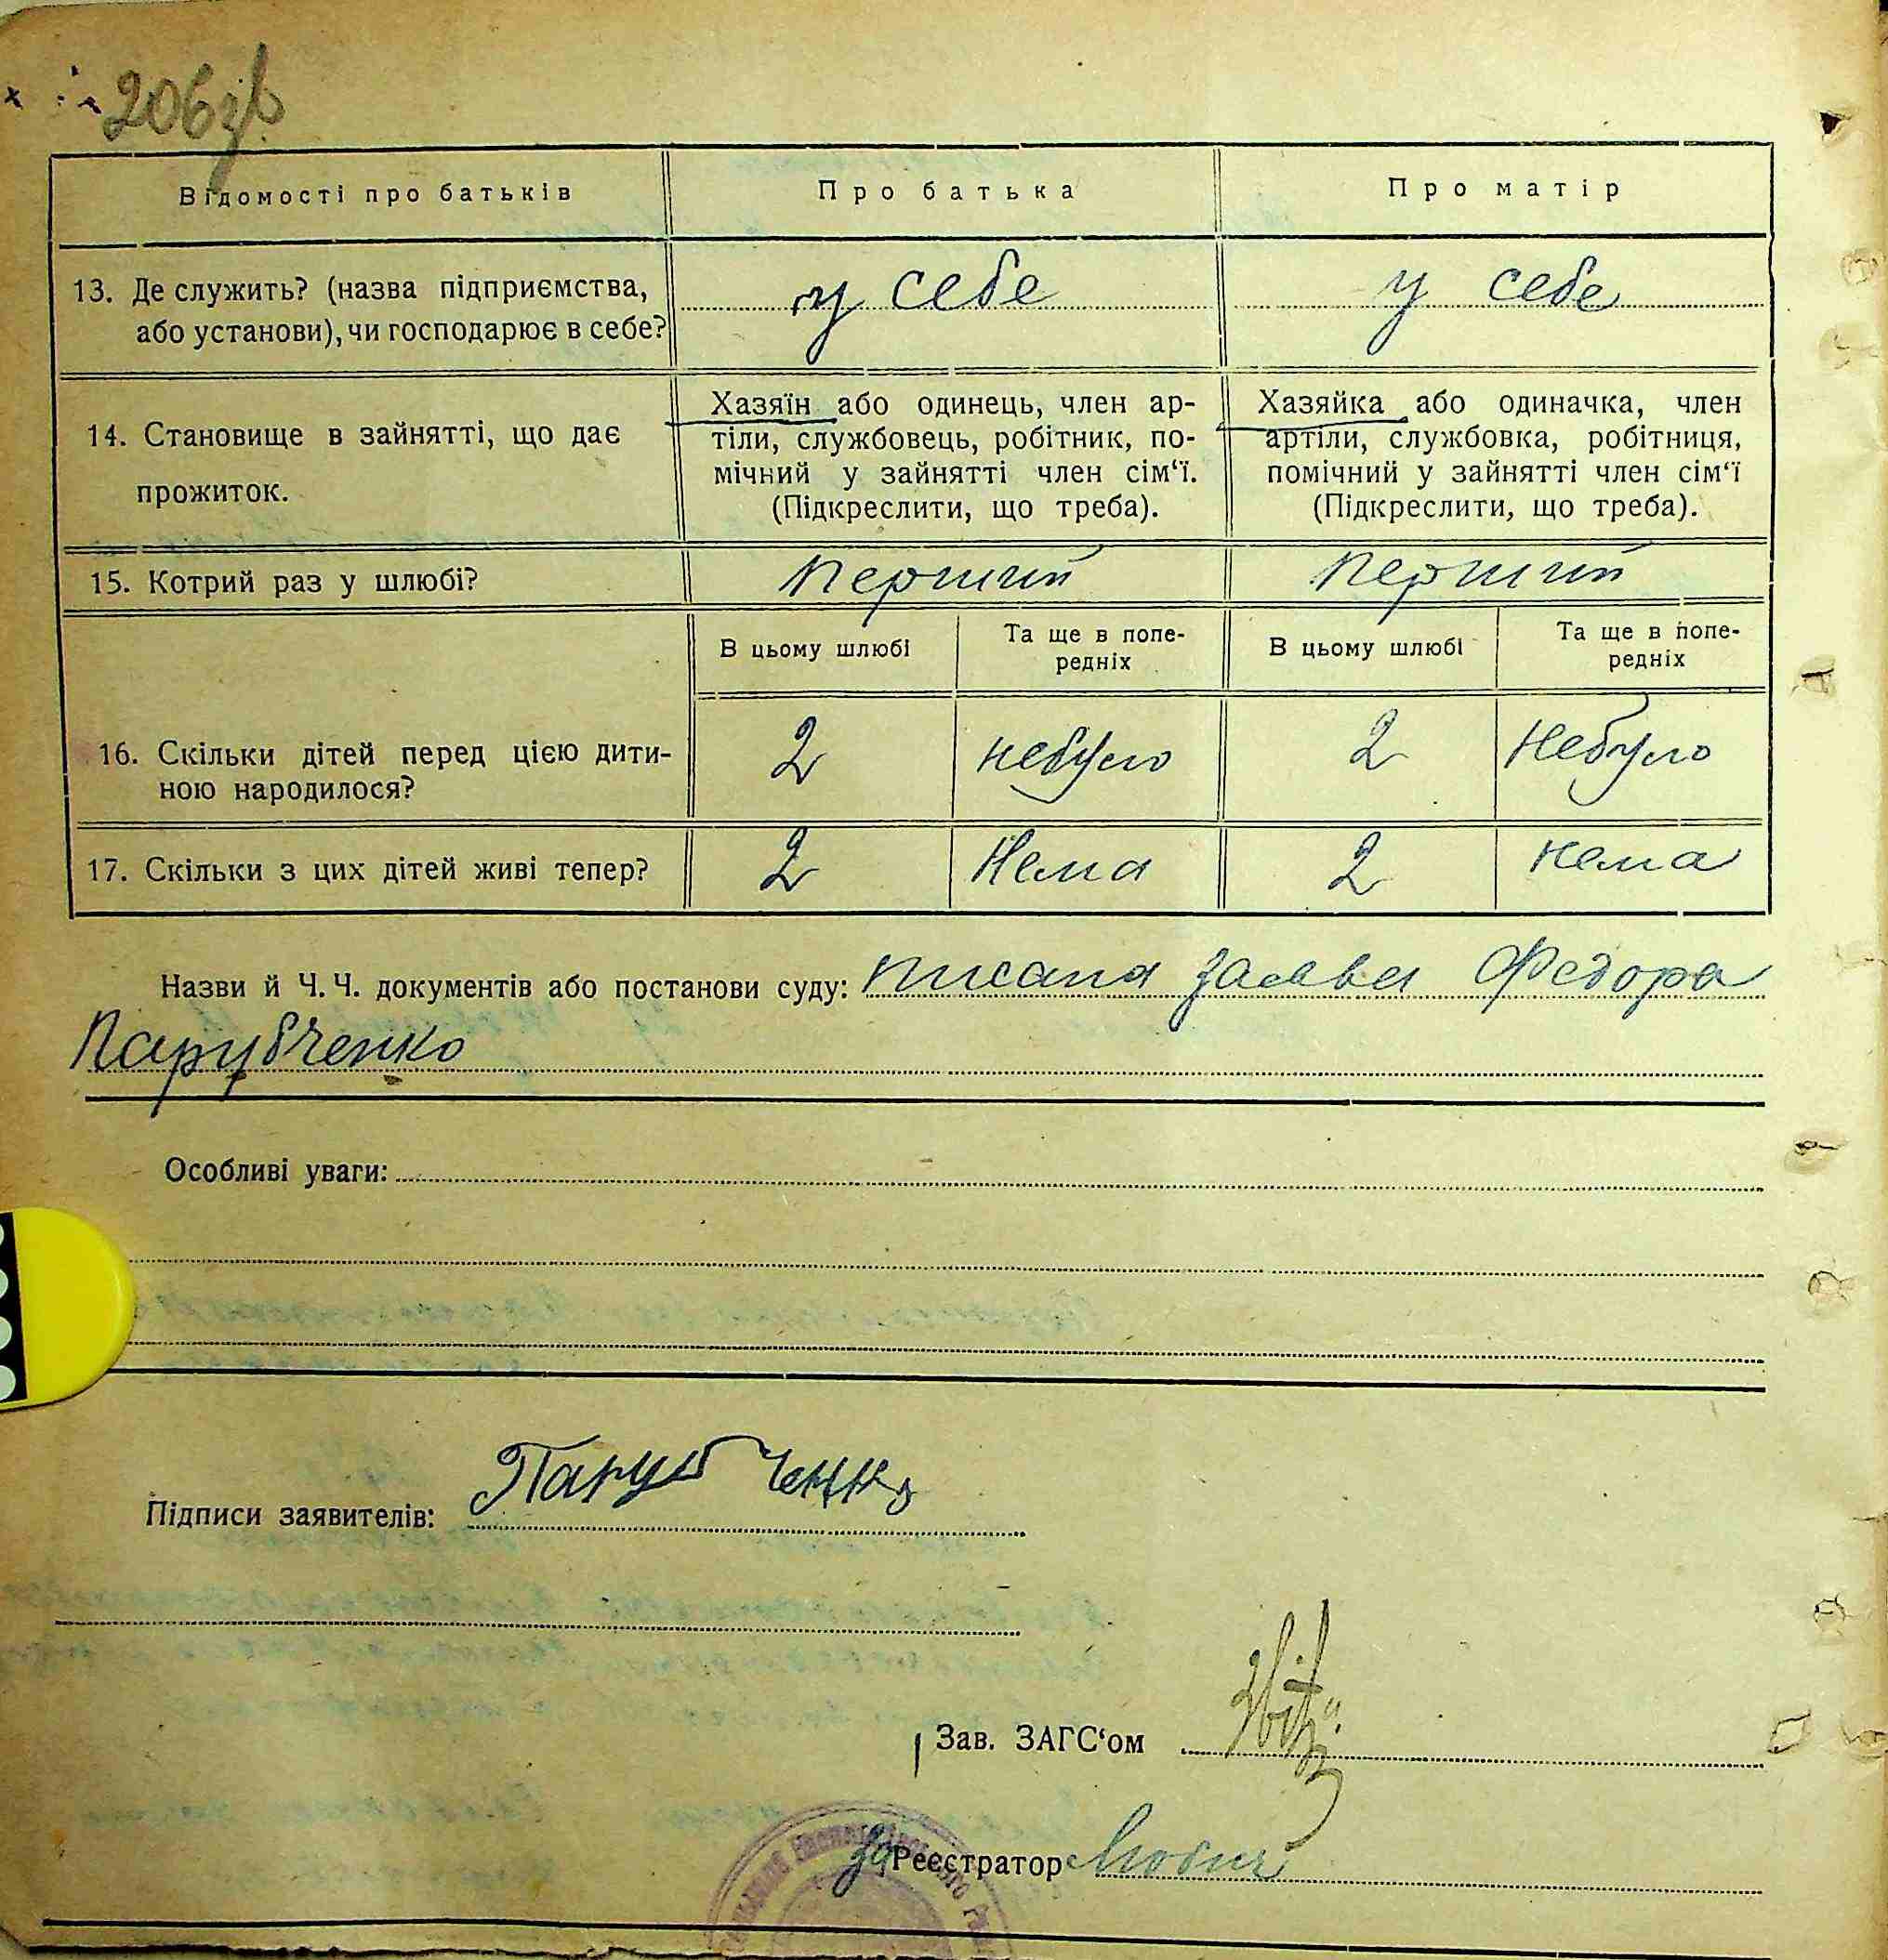 206 зв.
Відомості про батьків
Про батька
Про матір
13. Де служить? (назва підприємства,
або установи), чи господарює в себе?
у себе
у себе
14. Становище в зайнятті, що дає
прожиток.
Хазяїн або одинець, член ар-
тіли, службовець, робітник, по-
мічний у зайнятті член сім‘ї.
(Підкреслити, що треба).
Хазяйка або одиначка, член
артіли, службовка, робітниця,
помічний у зайнятті член сім‘ї
(Підкреслити, що треба).
15. Котрий раз у шлюбі?
Перший
Перший
В цьому шлюбі
Та ще в попе-
редніх
В цьому шлюбі
Та ще в попе-
редніх
16. Скільки дітей перед цією дити-
ною народилося?
2
небуло
2
Небуло
17. Скільки з цих дітей живі тепер?
2
Нема
2
нема
Назви й Ч. Ч. документів або постанови суду: писана заява Федора
Парубченко
Особливі уваги:
Підписи заявителів: Парубченко
Зав. ЗАГС‘ом
За Реєстратор